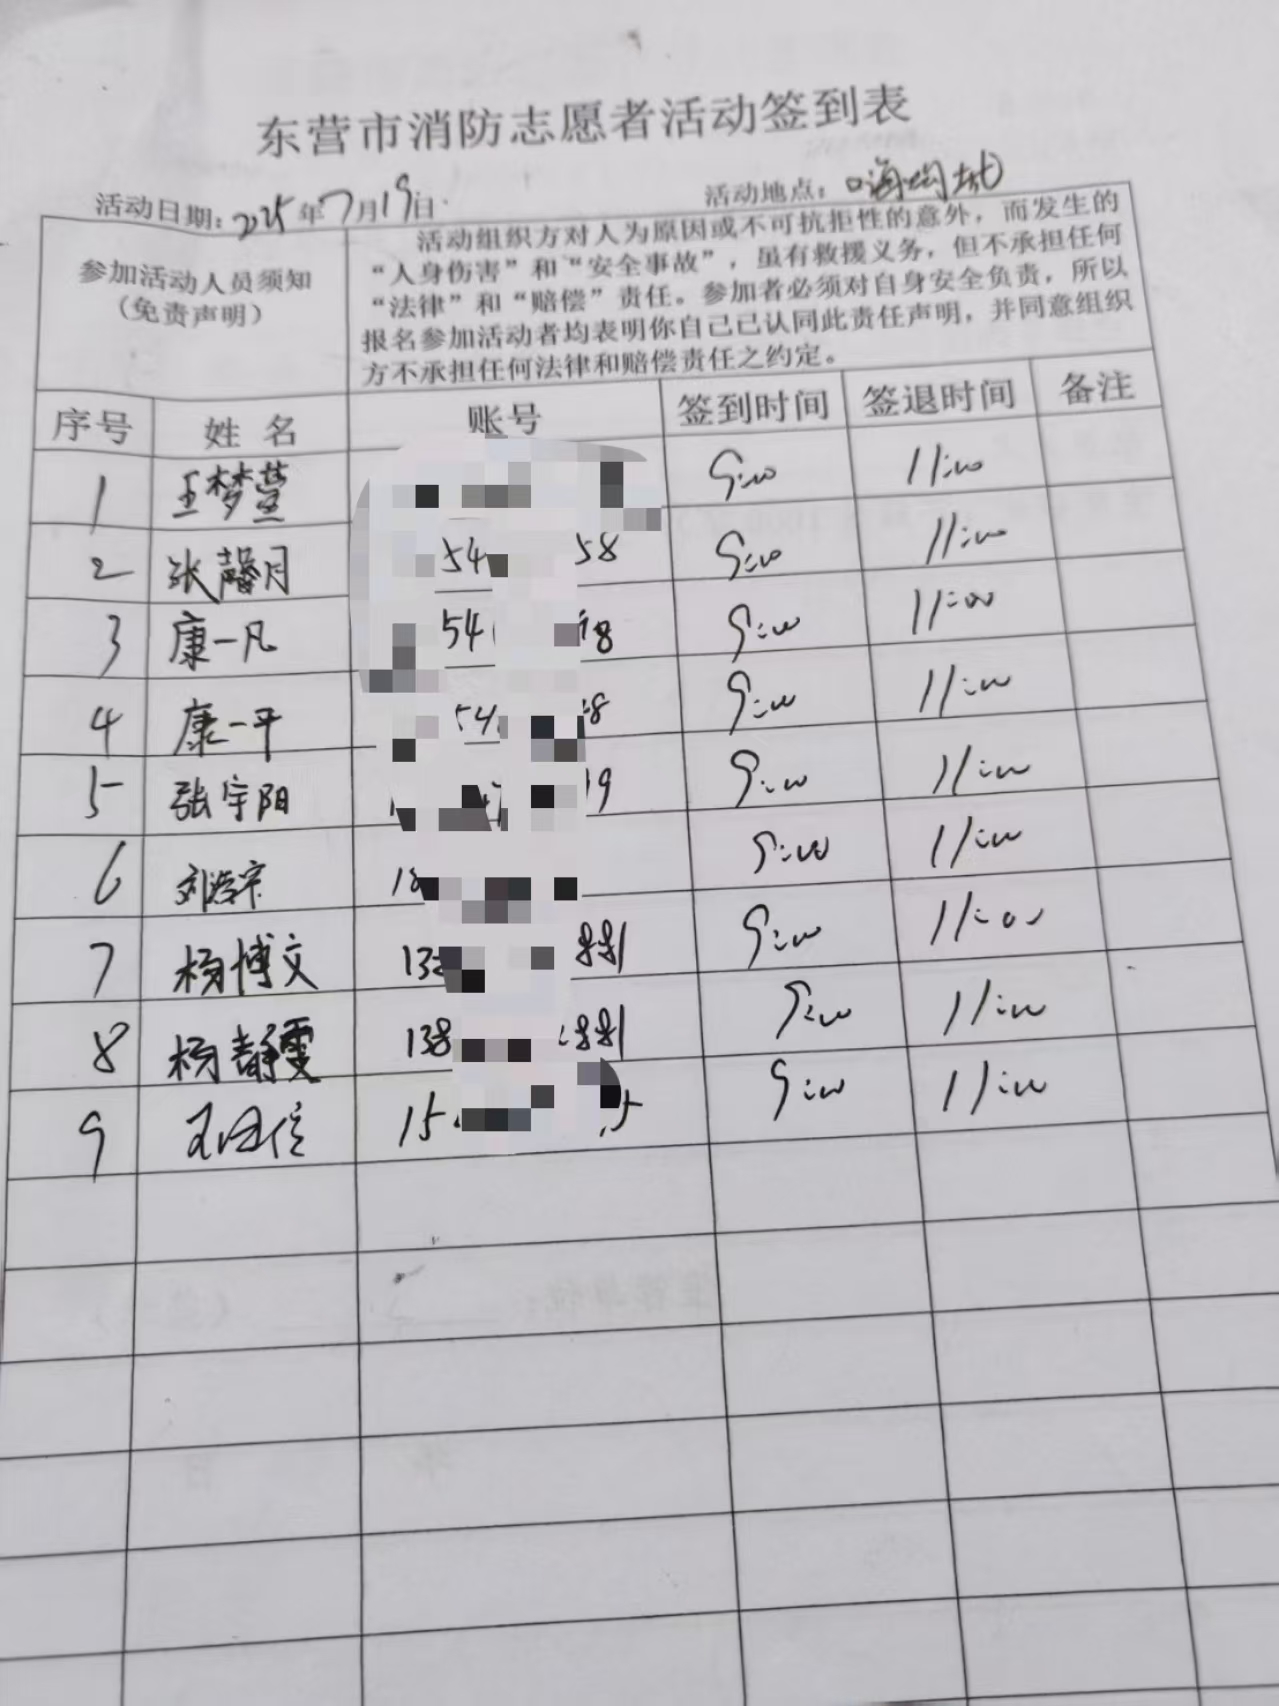 东营市消防志愿者活动签到表
活动日期：2025年7月19日 活动地点：
参加活动人员须知
（免责声明）
活动组织方对人为原因或不可抗拒性的意外，而发生的
“人身伤害”和“安全事故”，虽有救援义务，但不承担任何
“法律”和“赔偿”责任。参加者必须对自身安全负责，所以
报名参加活动者均表明你自己已认同此责任声明，并同意组织
方不承担任何法律和赔偿责任之约定。
序号 姓名 账号 签到时间 签退时间 备注
1 王梦萱 9:00 11:00
2 张馨月 54 58 9:00 11:00
3 康一凡 54 18 9:00 11:00
4 康一平 54 8 9:00 11:00
5 张宇阳 19 9:00 11:00
6 刘浩宇 18 9:00 11:00
7 杨博文 13 881 9:00 11:00
8 杨静雯 138 881 9:00 11:00
9 15 5 9:00 11:00